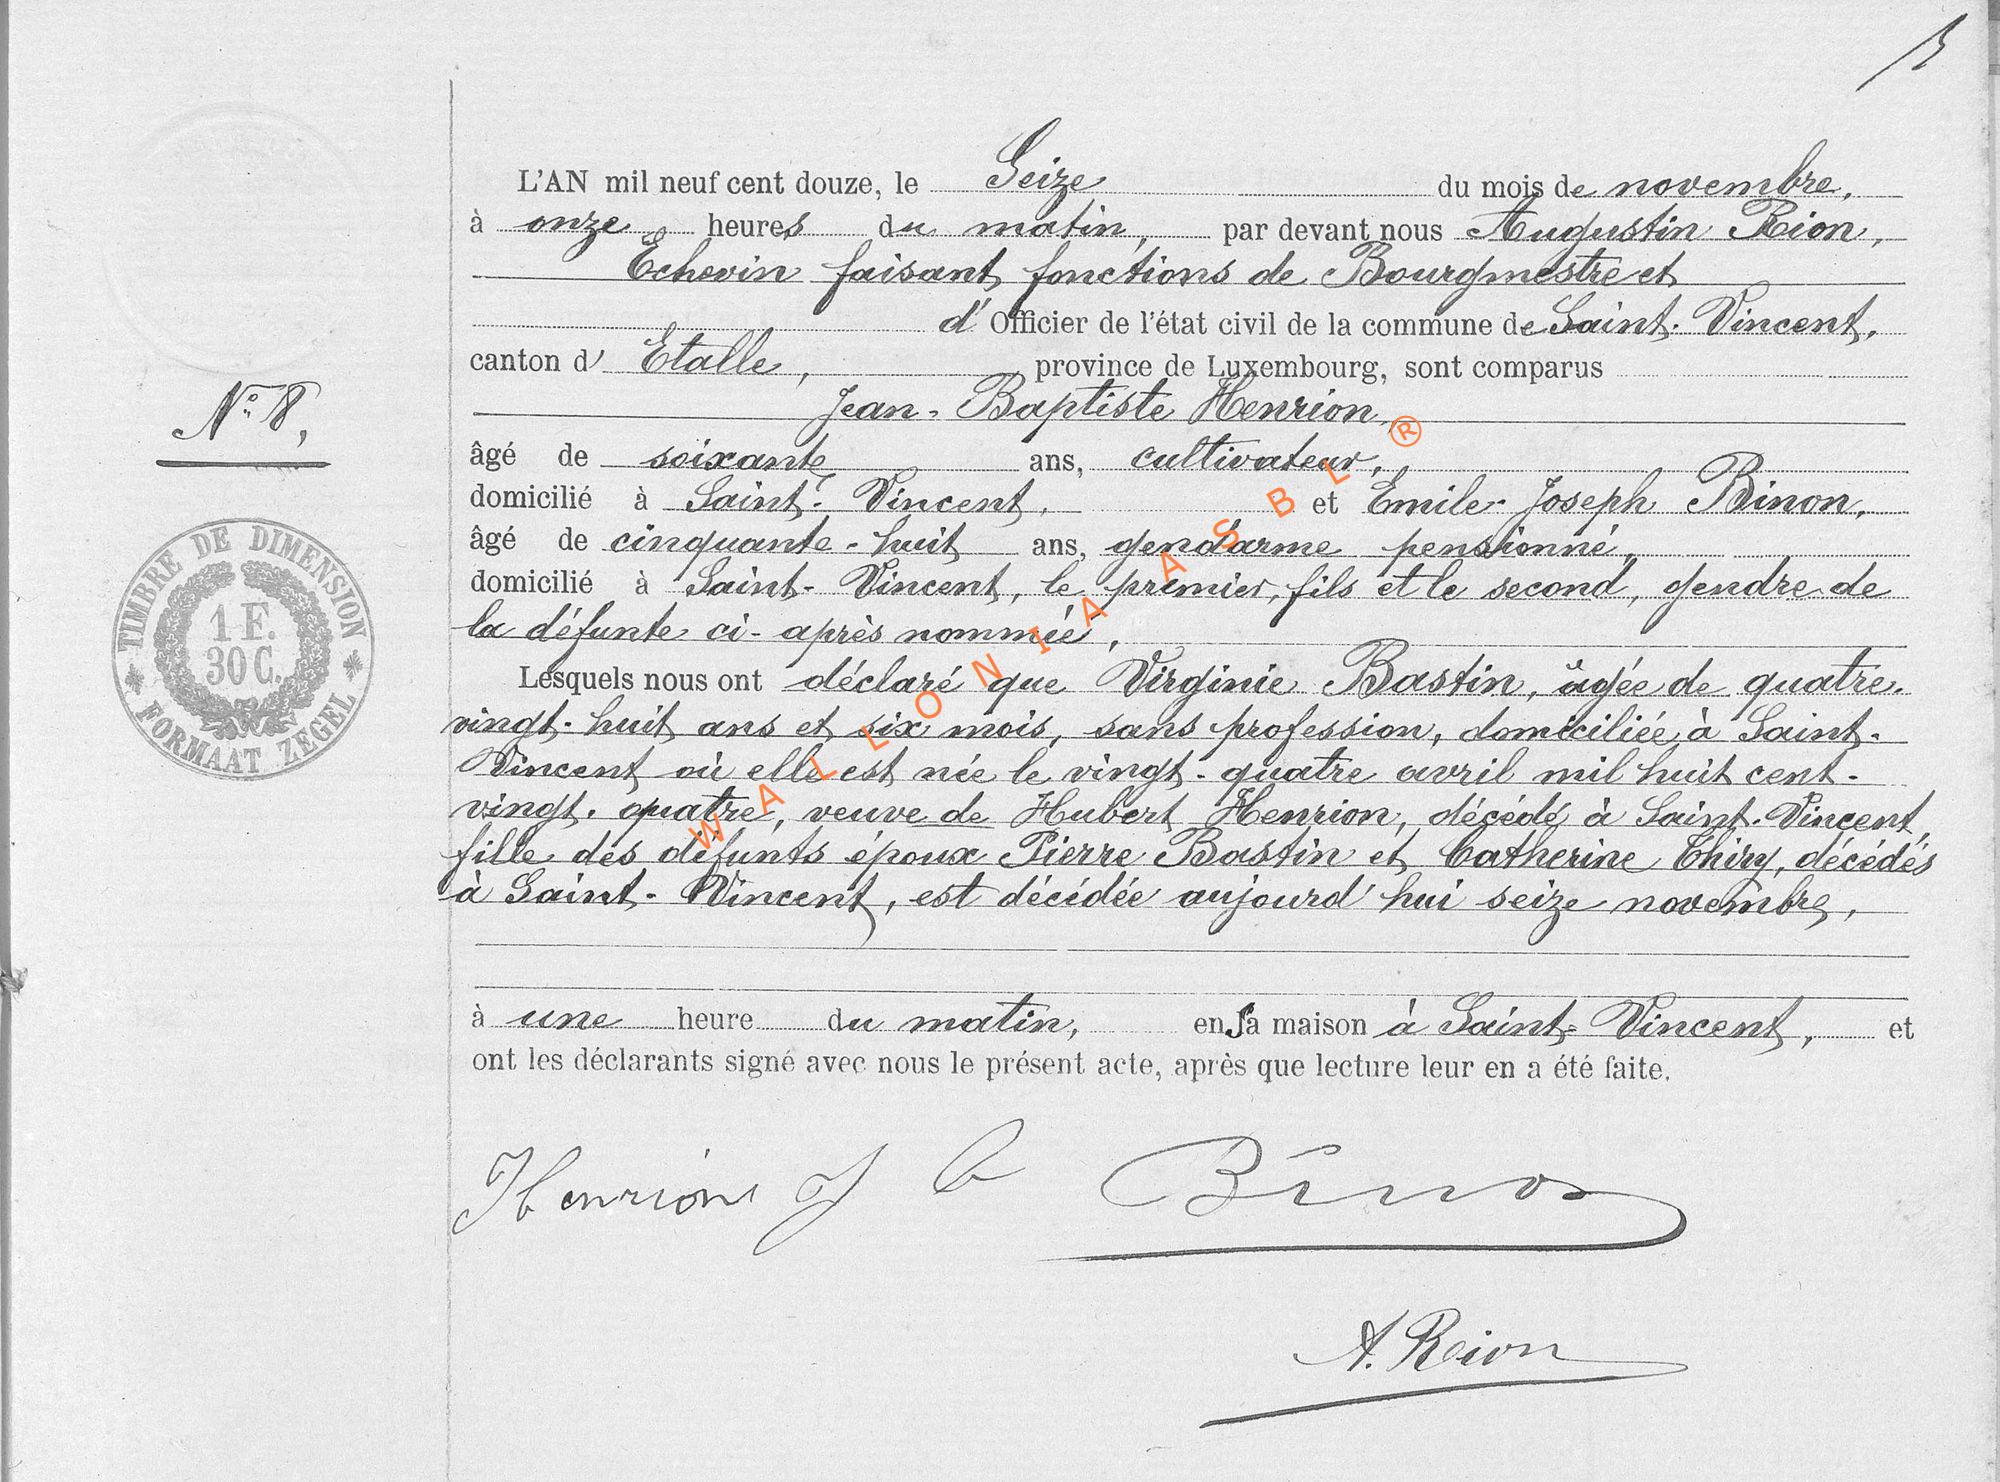 L'AN mil neuf cent douze, le Seize du mois de novembre,
à onze heures du matin, par devant nous Augustin Rion,
Echevin faisant fonctions de Bourgmestre et
d' Officier de l'état civil de la commune de Saint-Vincent,
canton d' Etalle, province de Luxembourg, sont comparus
Jean-Baptiste Henrion,
N° 8,
âgé de soixante ans, cultivateur,
domicilié à Saint-Vincent, et Emile-Joseph Binon,
âgé de cinquante-huit ans, gendarme pensionné,
domicilié à Saint-Vincent, le premier, fils et le second, gendre de
la défunte ci-après nommée,
TIMBRE DE DIMENSION
1 F.
30 C.
FORMAAT ZEGEL
Lesquels nous ont déclaré que Virginie Bastin, âgée de quatre-
vingt-huit ans et six mois, sans profession, domiciliée à Saint-
Vincent où elle est née le vingt-quatre avril mil huit cent-
vingt-quatre, veuve de Hubert Henrion, décédé à Saint-Vincent,
fille des défunts époux Pierre Bastin et Catherine Thiry, décédés
à Saint-Vincent, est décédée aujourd'hui seize novembre,
à une heure du matin, en sa maison à Saint-Vincent, et
ont les déclarants signé avec nous le présent acte, après que lecture leur en a été faite.
Henrion J b Binon
A. Rion
WALLONIA ASBL ®